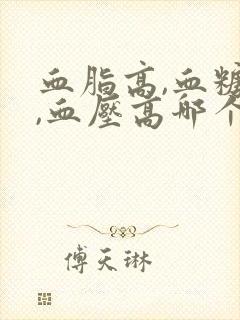 血脂高,血糖
,血壓高哪个
傅天琳